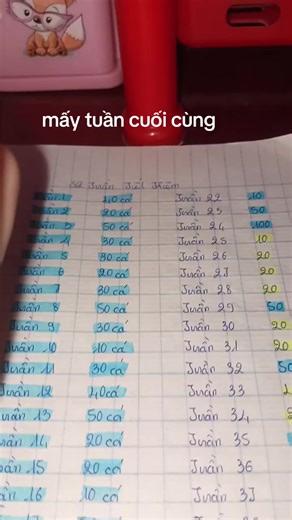 mấy tuần cuối cùng
52 Tuần Tiết Kiệm
Tuần 1 40 cá Tuần 22
Tuần 2 20 cá Tuần 23 50
Tuần 3 50 cá Tuần 24 100
Tuần 4 30 cá Tuần 25 10
Tuần 5 30 cá Tuần 26 20
Tuần 6 20 cá Tuần 27 20
Tuần 7 30 cá Tuần 28 20
Tuần 8 50 cá Tuần 29 50
Tuần 9 30 cá Tuần 30 20
Tuần 10 10 cá Tuần 31 20
Tuần 11 30 cá Tuần 32
Tuần 12 40 cá Tuần 33
Tuần 13 50 cá Tuần 34
Tuần 14 20 cá Tuần 35
Tuần 15 20 cá Tuần 36
Tuần 16 10 cá Tuần 37
38